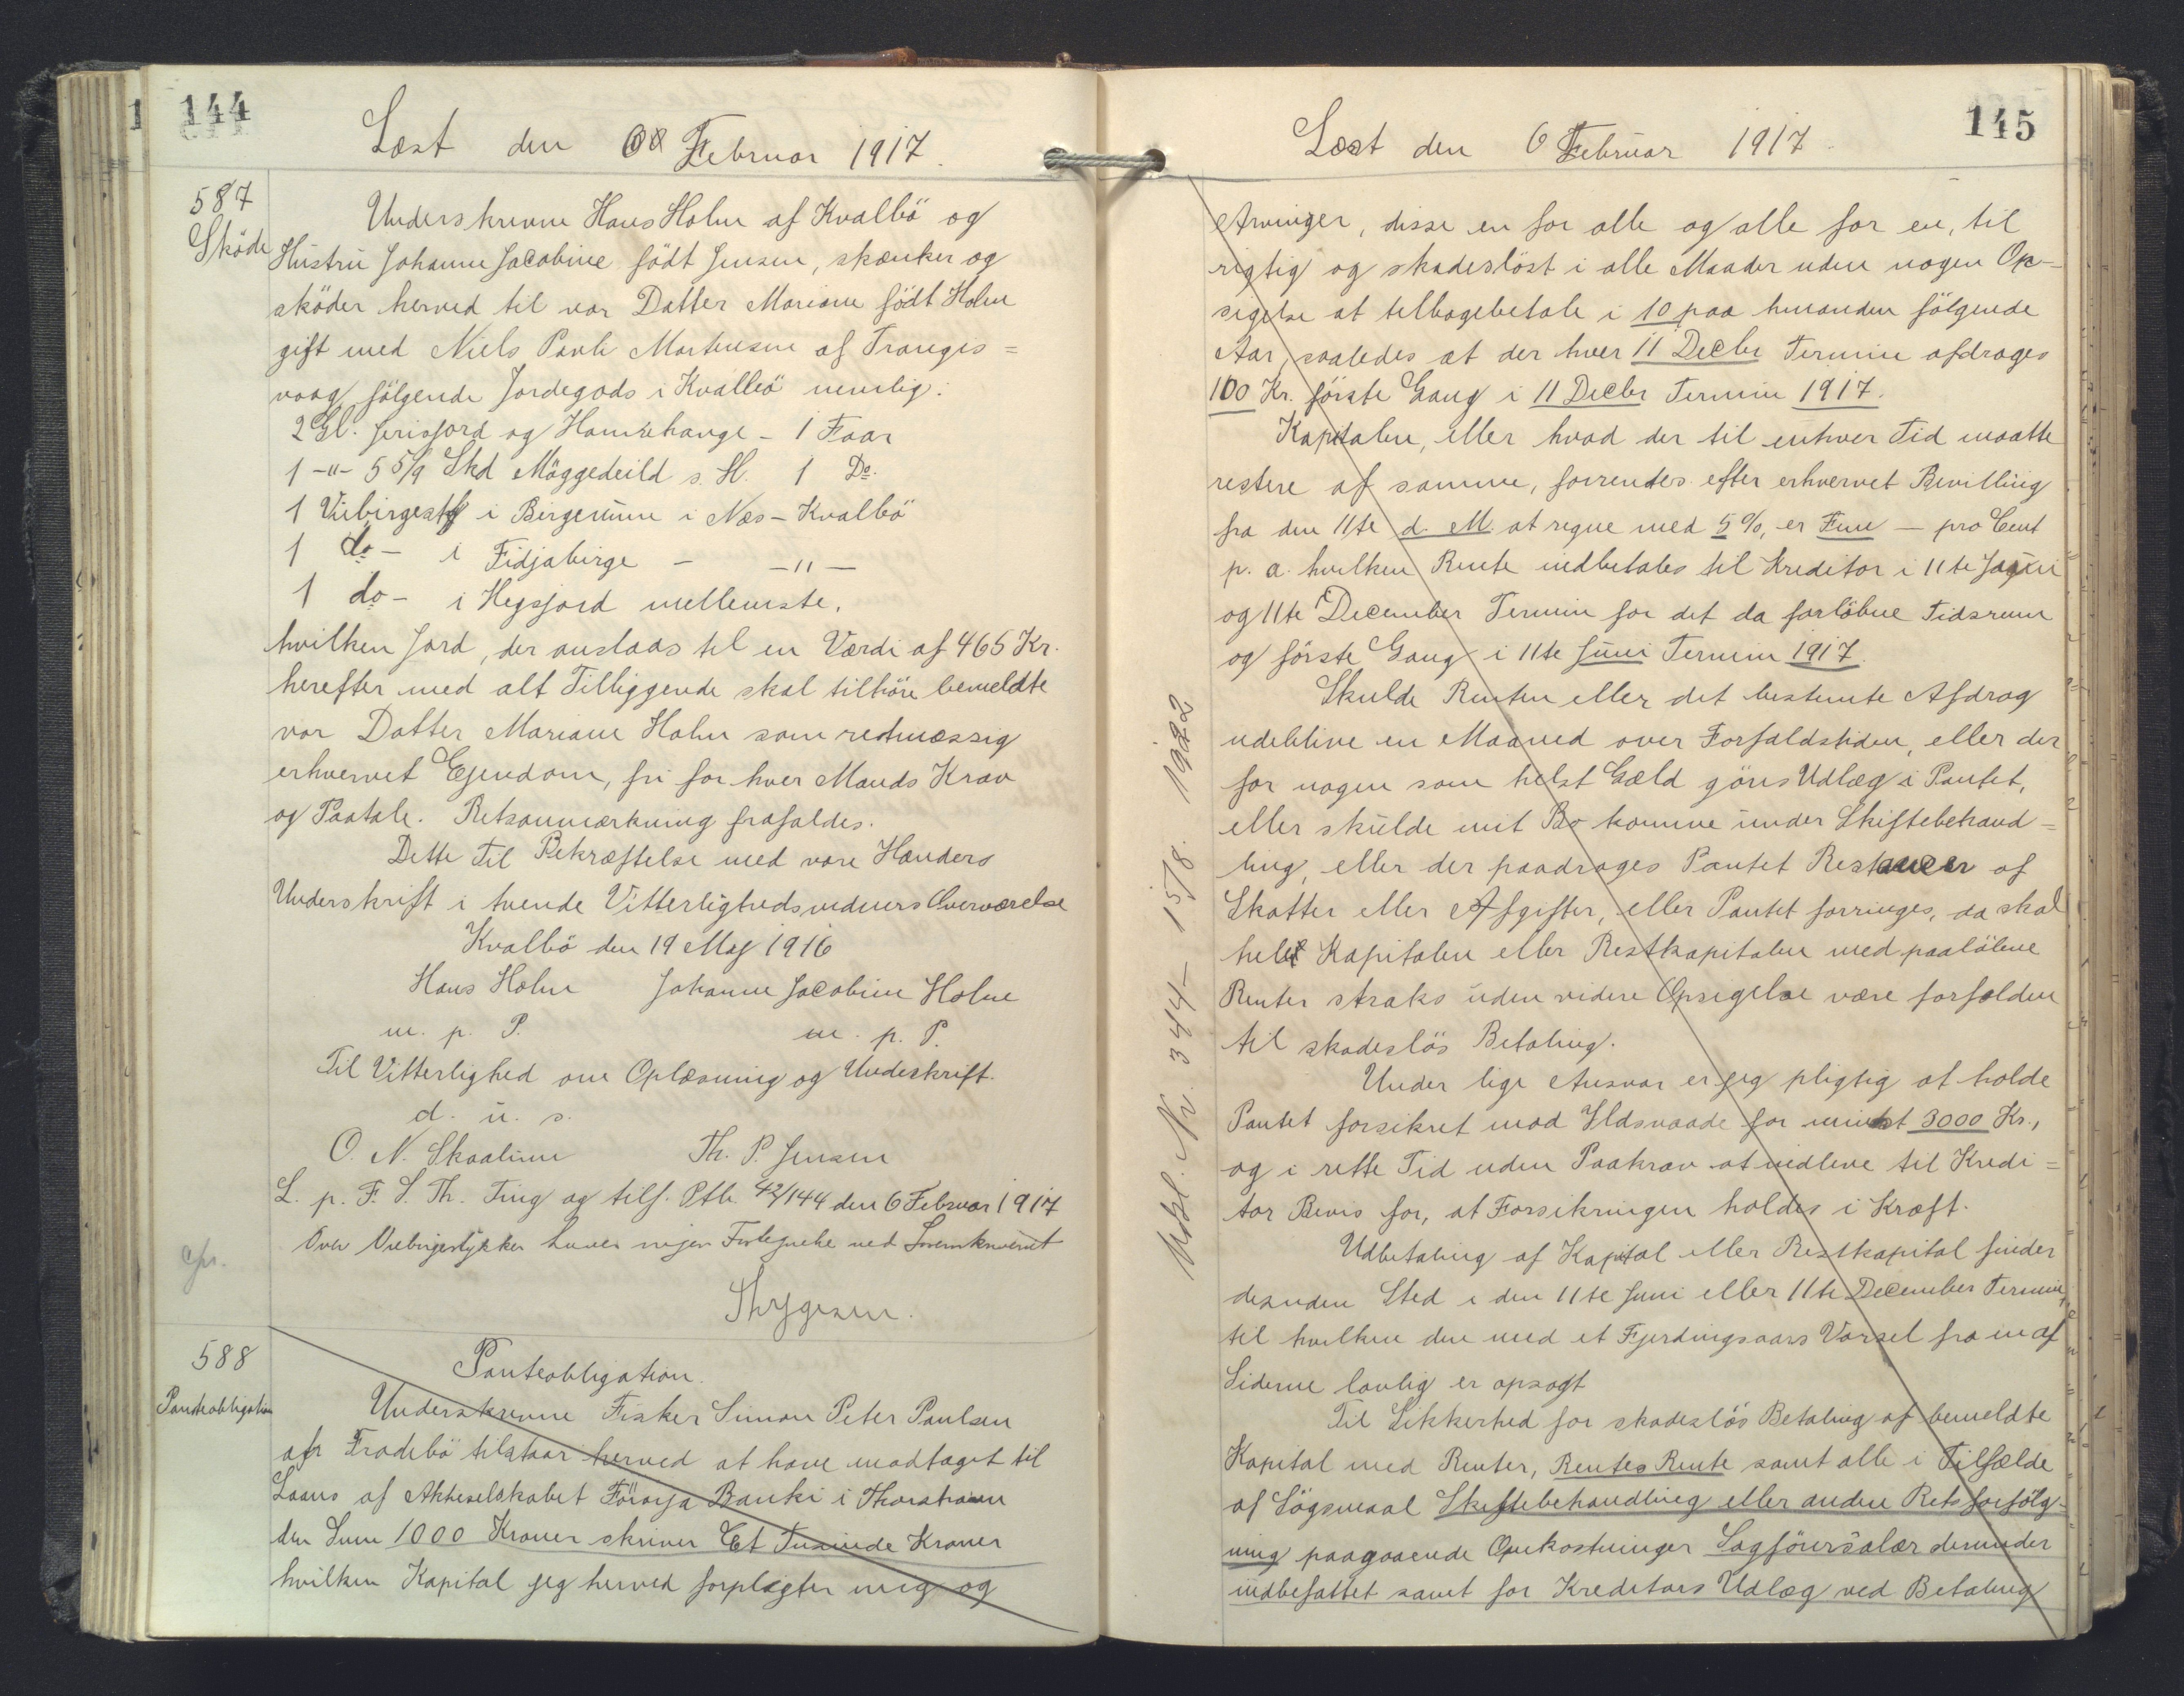 144
Læst den 6 Februar 1917.
587
Sköde
Underskrevne Hans Holm af Kvalbö og
Hustru Johanne Jacobine födt Jensen, skænker og
sköder herved til vor Datter Mariane födt Holm
gift med Niels Pauli Mortensen af Trangis=
vaag, fölgende Jordegods i Kvalbö nemlig:
2 Gl. Jerisjord og Hamrehauge - 1 Faar
1 -"- 5 5/9 Skd Möggedeild s. St. 1 Do.
1 Viebirgestk i Birgerunne i Næs - Kvalbö
1 do - i Fidjabirge - -"-
1 do - i Hegsjord mellemste.
hvilken Jord, der anslaas til en Værdi af 465 Kr.
herefter med alt Tilliggende skal tilhöre bemeldte
vor Datter Mariane Holm som retmæssig
erhvervet Ejendom, fri for hver Mands Krav
og Paatale. Retsanmærkning frafaldes.
Dette til Bekræftelse med vore Hænders
Underskrift i tvende Vitterlighedsvidners Overværelse
Kvalbö den 19 Maj 1916
Hans Holm Johanne Jacobine Holm
m. p. P. m. p. P.
Til Vitterlighed om Oplæsning og Underskrift.
d. u. s.
O. N. Skaalum Th. P. Jensen
L. p. F. S. Th. Ting og tilf. Ptb. 42/144 den 6 Februar 1917
Over Viebirgestykker haves ingen Fortegnelse ved
Thygesen.
588
Panteobligation
Panteobligation.
Underskrevne Fisker Simon Peter Poulsen
af Frodebö tilstaar herved at have modtaget til
Laans af Aktieselskabet Föroya Banki i Thorshavn
den Sum 1000 Kroner skriver Et Tusinde Kroner
hvilken Kapital jeg herved forpligter mig og
145
Læst den 6 Februar 1917.
Arvinger, disse en for alle og alle for en, til
rigtig og skadeslöst i alle Maader uden nogen Op-
sigelse at tilbagebetale i 10 paa hinanden fölgende
Aar, saaledes at der hver 11 Decbr Termin afdrages
100 Kr. förste Gang i 11 Decbr Termin 1917.
Kapitalen, eller hvad der til enhver Tid maatte
restere af samme, forrentes efter erhvervet Bevilling
fra den 11te d. M. at regne med 5 %, er Fem - pro Cent
p. a. hvilken Rente indbetales til Kreditor i 11te Juni
og 11te December Termin for det da forlöbne Tidsrum
og förste Gang i 11te Juni Termin 1917.
Skulde Renten eller det bestemte Afdrag
udeblive en Maaned over Forfaldstiden, eller der
for nogen som helst Gæld göres Udlæg i Pantet,
eller skulde mit Bo komme under Skiftebehand=
ling, eller der paadrages Pantet Restancer af
Skatter eller Afgifter, eller Pantet forringes, da skal
hele Kapitalen eller Restkapitalen med paalöbne
Renter straks uden videre Opsigelse være forfalden
til skadeslös Betaling.
Under lige Ansvar er jeg pligtig at holde
Pantet forsikret mod Ildsvaade for mindst 3000 Kr.,
og i rette Tid uden Paakrav at indleve til Kredi=
tor Bevis for, at Forsikringen holdes i Kraft.
Udbetaling af Kapital eller Restkapital finder
desuden Sted i den 11te Juni eller 11te December Termin,
til hvilken den med et Fjerdingsaars Varsel fra en af
Siderne lovlig er opsagt
Til Sikkerhed for skadeslös Betaling af bemeldte
Kapital med Renter, Rentes Rente samt alle i Tilfælde
af Sögsmaal Skiftebehandling eller anden Retsforfölg-
ning paagaaende Omkostninger Sagförersalær derunder
indbefattet samt for Kreditors Udlæg ved Betaling
Udsl. Nr. 344 - 15/8. 1922